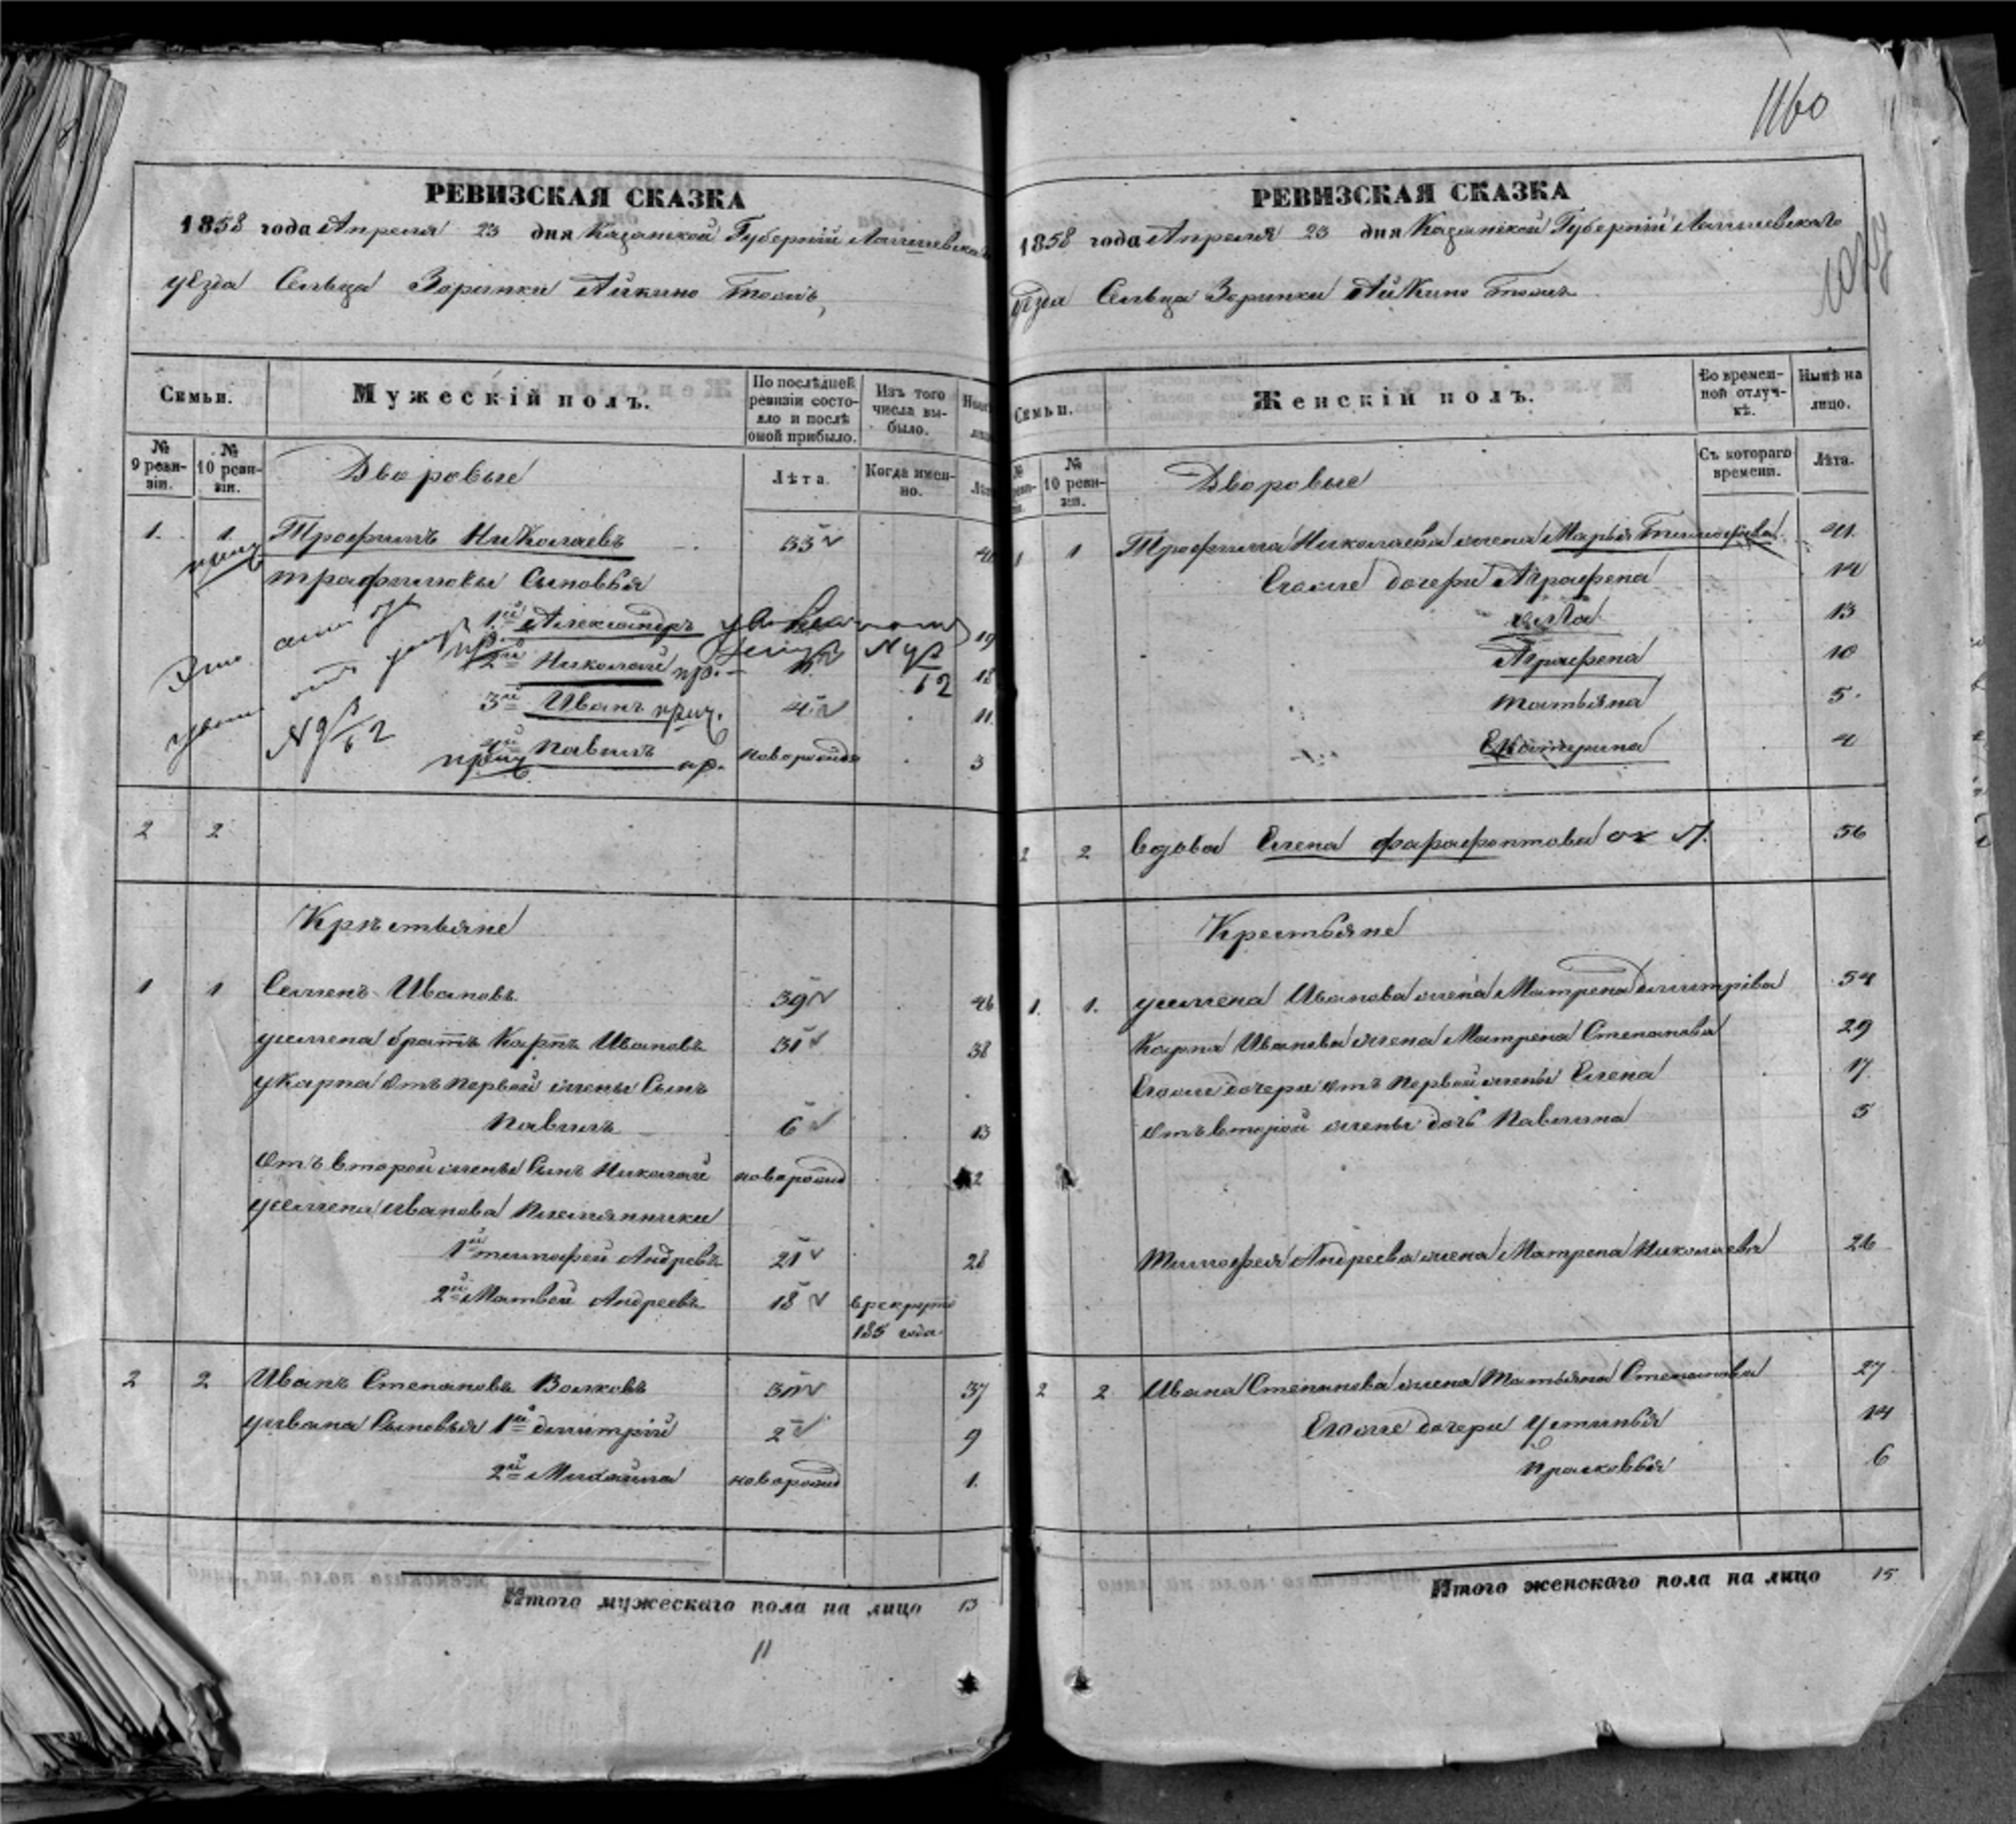 РЕВИЗСКАЯ СКАЗКА
1858 года Апреля 23 дня Казанской Губерній Лаишевска
уѣзда Сельца Зоринки Айкино тожъ,
Семьи.
Мужескій полъ.
По послѣдней ревизіи состояло и послѣ оной прибыло.
Изъ того числа выбыло.
№ 9 ревизіи.
№ 10 ревизіи.
Дворовые
Лѣта.
Когда именно.
1. 1. Трофимъ Николаевъ 33 40
трафимовы Сыновья
1й Александръ 19
2й Николай пр. 18
3й Иванъ 4 11
4й Павилъ пр. новорожд 3
2 2
Крѣстьяне
1 1 Семенъ Ивановъ 39 46
усемена братъ Карпъ Ивановъ 31 38
укарпа отъ первой жены Сынъ
Павилъ 6 13
Отъ второй жены Сынъ Николай новорожд 2
усемена иванова племянники
1й тимофей Андревъ 21 28
2й Матвей Андреевъ 18 врекруты
185 года
2 2 Иванъ Степановъ Волковъ 30 37
уивана Сыновья 1й дмитрій 2 9
2й Михайла новорожд 1.
Итого мужескаго пола на лицо 13
11
1160
РЕВИЗСКАЯ СКАЗКА
1858 года Апреля 23 дня Казанской Губерній Лаишевскаго
уѣзда Сельца Зоринки Айкино тожъ
Семьи.
Женскій полъ.
Во временной отлучкѣ.
Нынѣ на лицо.
№ 10 ревизіи.
Дворовые
Съ котораго времени.
Лѣта.
1 1 Трофима Николаева жена Марья Тимофеева 41.
Егоже дочери Аграфена 14
13
Аграфена 10
татьяна 5.
Екатерина 4
2 2 Вдова Елена фарафонтова 56
Крестьяне
1. 1. усемена Иванова жена Матрена дмитріва 54
Карпа Иванова жена Матрена Степанова 29
Егоже дочери отъ первой жены Елена 17.
отъ второй жены дочь Павлина 5
Тимофея Андреева жена Матрена Николаева 26
2 2. Ивана Степанова жена Татьяна Степанова 27
Егоже дочери Устинья 14
Прасковья 6
Итого женскаго пола на лицо 15